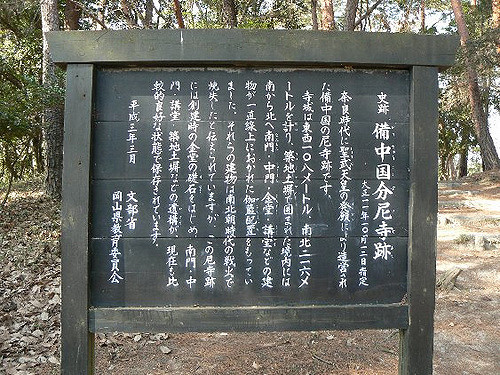 史跡 備中国分尼寺跡
大正一一年一〇月一二日指定
奈良時代に聖武天皇の発願により造営され
た備中国の尼寺跡です。
寺域は東西一〇八メートル、南北二一六メ
ートルを計り、築地土塀で囲まれた境内には
南から北へ南門・中門・金堂・講堂などの建
物が一直線上におかれた伽藍配置をもってい
ました。それらの建物は南北朝時代の戦火で
焼失したと伝えられていますが、この尼寺跡
には創建時の金堂の礎石をはじめ、南門・中
門・講堂・築地土塀などの遺構が、現在も比
較的良好な状態で保存されています。
平成三年三月
文部省
岡山県教育委員会